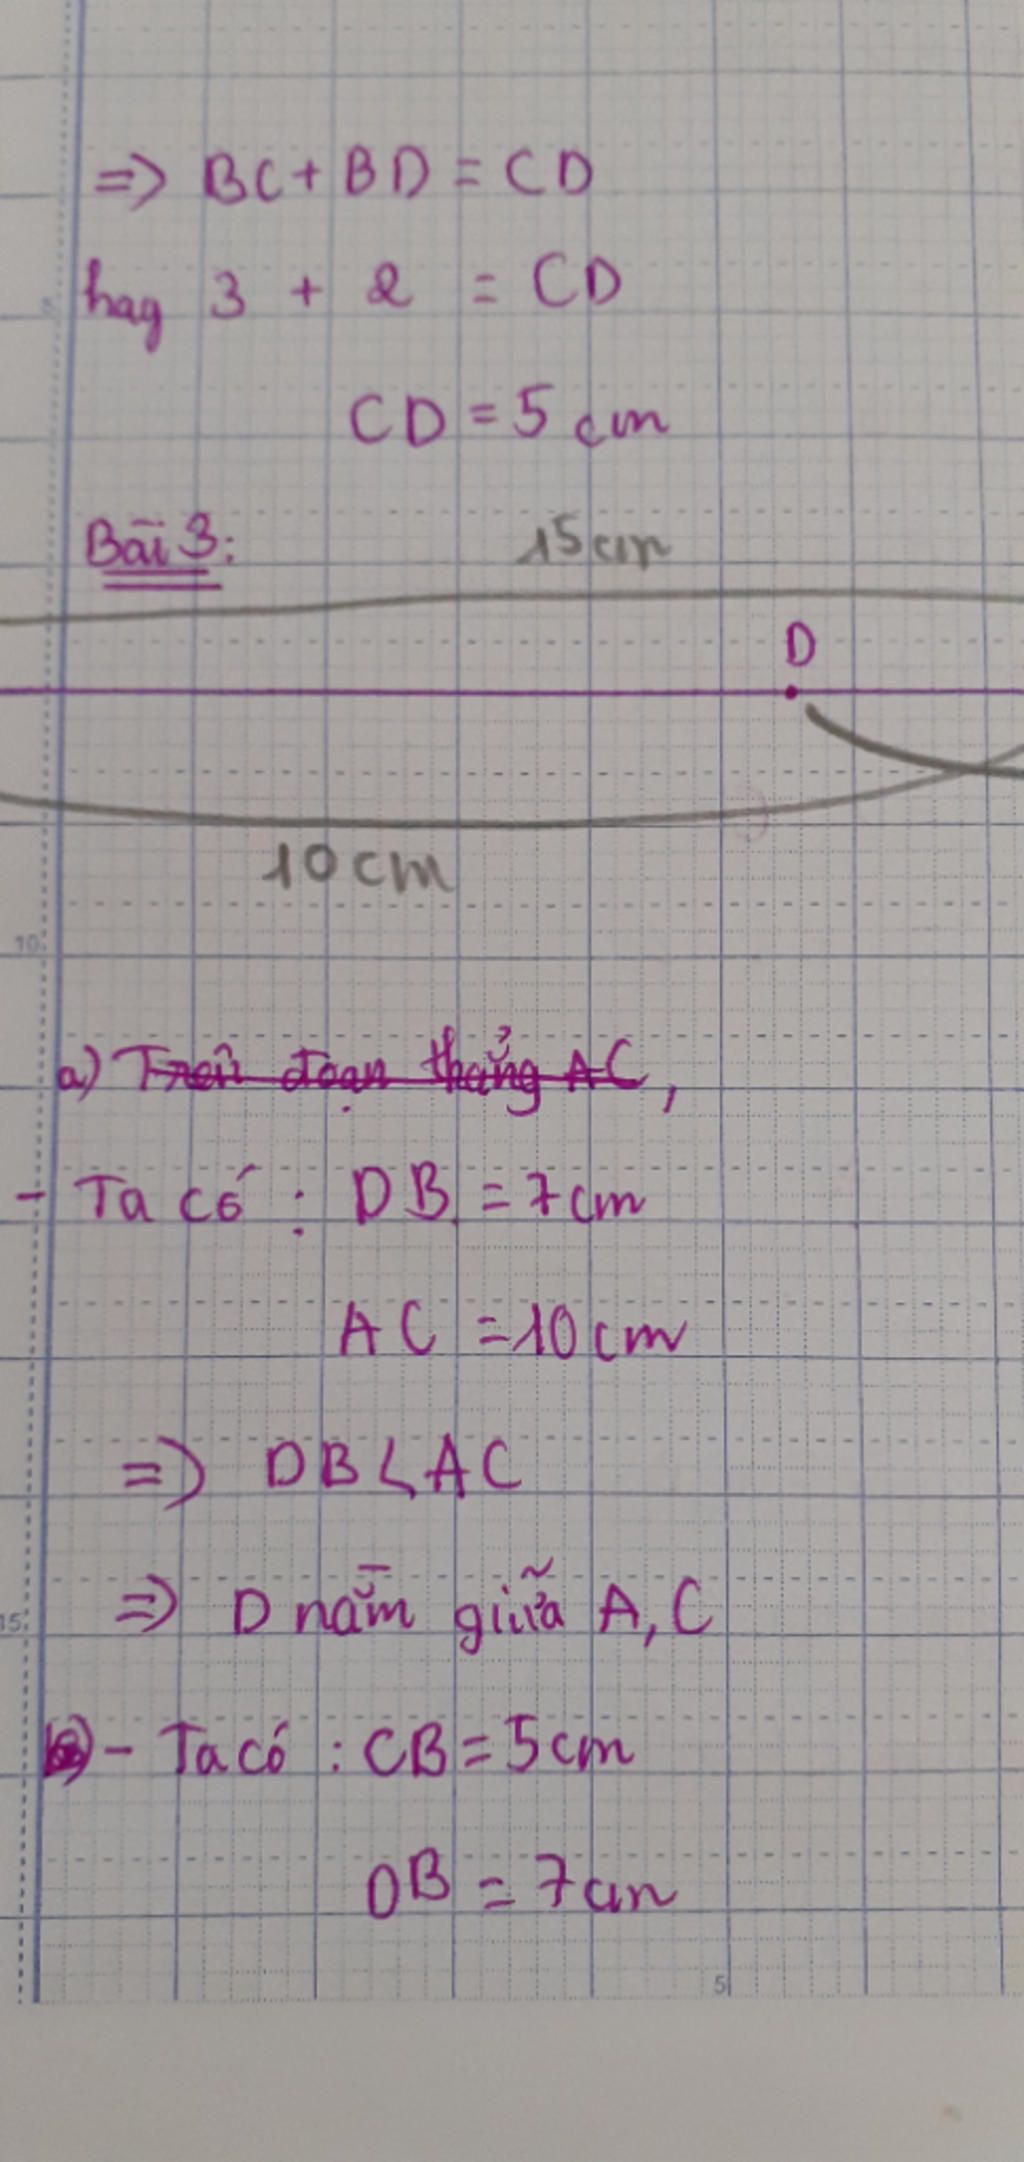 => BC + BD = CD
hay 3 + 2 = CD
CD = 5 cm
Bài 3:
15cm
D
10cm
10
a) Trên đoạn thẳng AC,
- Ta có : DB = 7cm
AC = 10cm
=> DB < AC
=> D nằm giữa A, C
15
- Ta có : CB = 5cm
DB = 7cm
5